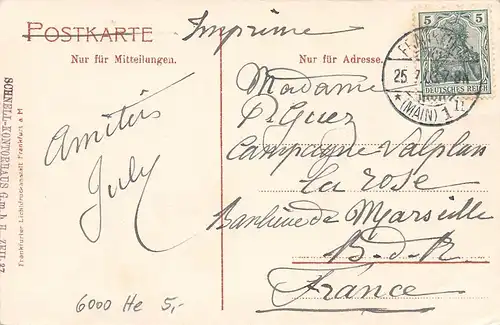 Imprimé
POSTKARTE
Nur für Mitteilungen.
Nur für Adresse.
5 5
DEUTSCHES REICH
25.
(MAIN) 1
Madame
P. Guez
Campagne Valplan
La Rose
Banlieue de Marseille
B-d-R
France
Amitiés
July
6000 He 5,-
SCHNELL-KONTORHAUS G.m.b.H. ZEIL 27
Frankfurter Lichtdruckanstalt Frankfurt a M